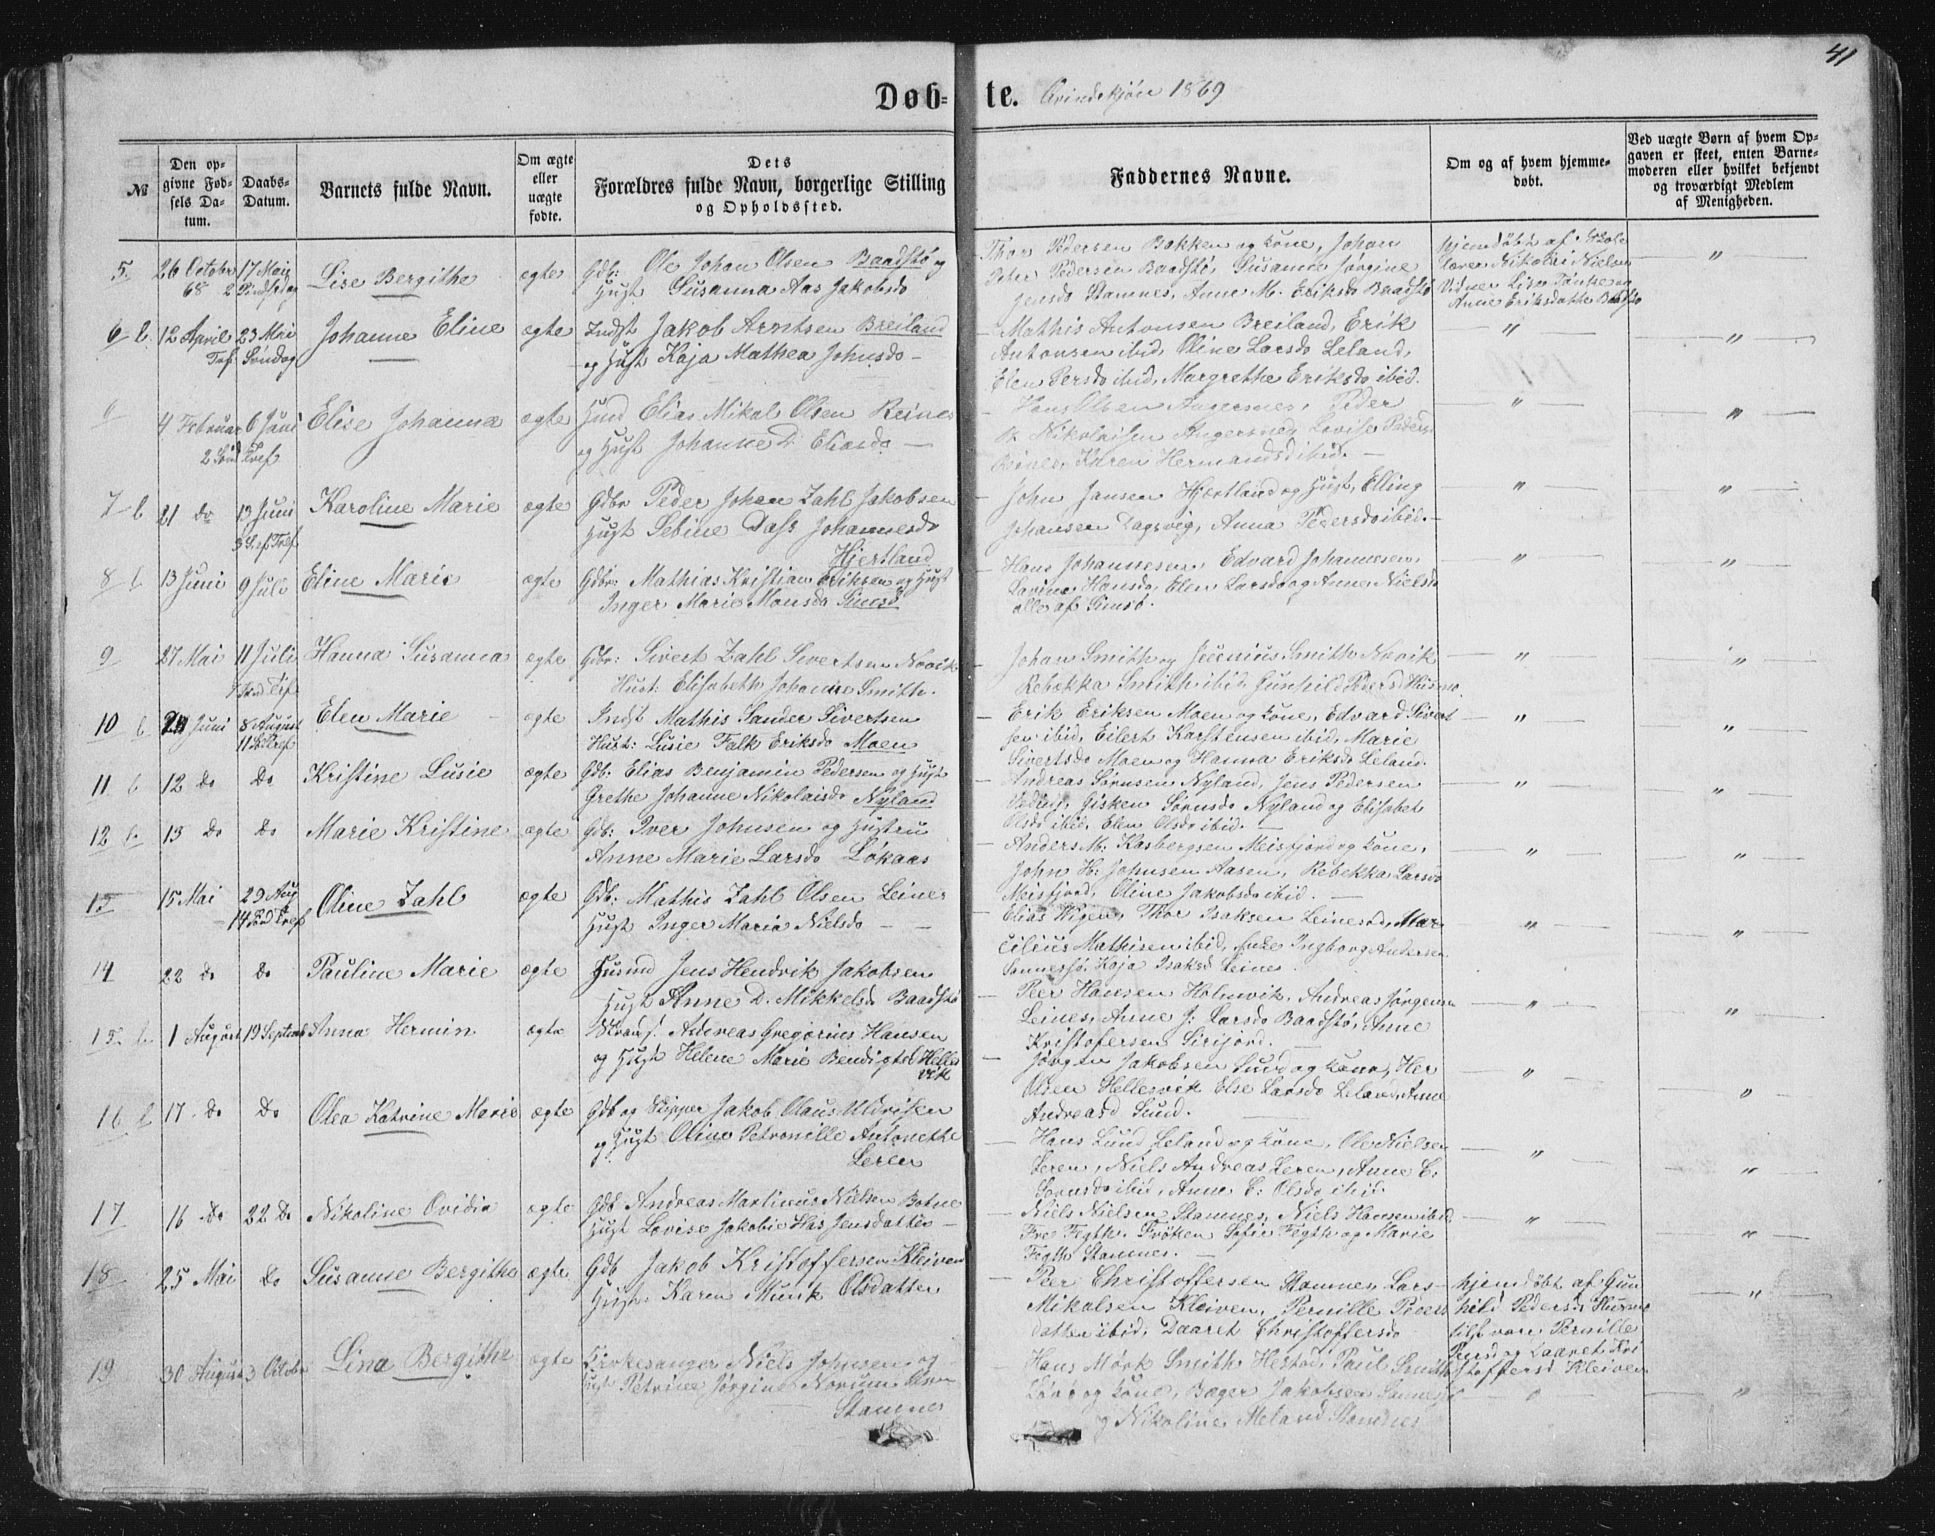 41
Døb- te. Qvindekjøn 1869
№
Den opgivne Fødsels Datum.
Daabs-Datum.
Barnets fulde Navn.
Om ægte eller uægte fødte.
Dets Forældres fulde Navn, borgerlige Stilling og Opholdssted.
Faddernes Navne.
Om og af hvem hjemmedøbt.
Ved uægte Børn af hvem Opgaven er skeet, enten Barnemoderen eller hvilket bekjendt og troværdigt Medlem af Menigheden.
5. 26 Octobr 68 17 Mai 2 Pindsedag Lise Bergithe ægte Gdb: Ole Johan Olsen Baadstø og
Hust Susanna Aas Jakobsdo
Thor Pedersen Bakken og Kone, Johan
Peter Pedersen Baadstø, Susanne Jørgine
Jensdo Stamnes, Anne M. Eriksdo Baadstø
hjemdøbt af Skole
lærer Nikolai Nielsen
Vidner Lise
Anne Eriksdatter Baadstø
6 b 12 April 23 Mai Tref. Søndag Johanne Eline ægte Indst Jakob Arntsen Breiland
og Hust Kaja Mathea Johnsdo
Mathis Antonsen Breiland, Erik
Antonsen ibid, Oline Larsdo Leland,
Elen Persdo ibid, Margrethe Eriksdo ibid.
4 Februar 6 Juni 2 Sønd Tref Elise Johanna ægte Husmd Elias Mikal Olsen Reines
og Hust Johanne D. Eliasdo
Hans Olsen Angersnes, Peder
Nikolaisen Angersnes, Lovise Peders
Reines, Karen Hermandsd ibid.
7 b 21 do 13 Juni 3 S. ef Tref Karoline Marie ægte Gdbr Peder Johan Zahl Jakobsen
Hust Sebine Dass Johannesdo
Hjertland
John Jansen Hjertland og Hust, Elling
Johansen Dagsvig, Anna Pedersdo ibid.
8 b 13 Juni 9 Juli Eline Marie ægte Gdbr: Mathias Kristian Eriksen og Hust
Inger Marie Monsdo Simsø
Hans Johannesen, Edvard Johannesen,
Lavine Hansdo, Elen Larsdo og Anne Nielsdo
alle af Simsø.
9 27 Mai 11 Juli Hanna Susanna ægte Gdbr: Sivert Zahl Sivertsen Novik
Hust: Elisabeth Johanne Smith.
Johan Smith og Jeenius Smith Novik
Rebekka Smith ibid, Gunhild Peders Husmo
10 b 24 Juni 8 August 11 S. Tref Elen Marie ægte Indst Mathis Sander Sivertsen
Hust: Lusie Falk Eriksdo Moen
Erik Eriksen Moen og Kone, Edvard Sivert
sen ibid, Eilert Karstensen ibid, Marie
Sivertsdo Moen og Hanna Eriksdo Leland.
11 b 12 do do Kristine Lusie ægte Gdb: Elias Benjamin Pedersen og Hust
Grethe Johanne Nikolaisdo Nyland
Andreas Sørnsen Nyland, Jens Pedersen
Gisken Sørnsdo Nyland og Elisabet
Olsdo ibid, Elen Olsdo ibid.
12 b. 13 do do Marie Kristine ægte Gdb: Iver Johnsen og Hustru
Anne Marie Larsdo Løkaas
Anders M: Kasbergsen Meisfjord og Kone,
John H: Johnsen Aasen, Rebekka Larsdo
Meisfjord, Oline Jakobsdo ibid.
13 15 Mai 29 Aug 14 Sønd Tref Oline Zahl ægte Gdb: Mathis Zahl Olsen Leines
Hust Inger Maria Nielsdo
Elias Wigen, Thor Isaksen Leinesod, Mar
cilius Mathisen ibid, Ingborg Andersen
Sannessjø, Kaja Isaksd Leines.
14 22 do do Pauline Marie ægte Husmd Jens Hendrik Jakobsen
Hust Anne D. Mikkelsdo Baadstø
Peer Hansen Holmvik, Andreas Jørgensen
Leines, Anne J: Larsdo Baadstø, Anne
Kristofersen Sirijord.
15. b. 1 August 19 Septemb Anna Hermin ægte Strands: Andreas Gregorius Hansen
og Hust Helene Marie Bendigted Helles
vik
Jørgen Jakobsen Sund og Kone, Her
Olsen Hellesvik Else Larsdo Leland, Anne
Andreasd Sund.
16 b 17 do do Olea Katrine Marie ægte Gdb og Skipper Jakob Olaus Uldriksen
og Hust Oline Petronille Antonette
Leren
Hans Lund Leland og Kone, Ole Nielsen
Leren, Niels Andreas Leren, Anne C.
Sørnsdo ibid, Anne C: Olsdo ibid.
17 16 do 22 do Nikoline Ovidia ægte Gdb Andreas Martinus Nielsen Botne
Hust Lovise Jakobie Has Jensdatter
Niels Nielsen Stamnes, Niels Hansen ibid
Fre Fegth, Frøken Sofie Fegth og Marie
Fegth Stamnes.
18 25 Mai do Susanne Bergithe ægte Gdb Jakob Kristoffersen Kleiven
Hust: Karen Munk Olsdatter
Peer Christoffersen Stamnes, Lars
Mikalsen Kleiven, Pernille Peders
datter ibid, Daaret Christoffersdo
hjemdøbt af Gun
hild Pedersd Husmo
tilst vare, Pernille
Persd og Daaret Kri
stoffersd Kleiven
19 30 August 3 October Lina Bergithe ægte Kirkesanger Niels Johnsen og
Hust Petrine Jørgine Norum
Stamnes
Hans Mørk Smith Hestad, Paul Smith
og Kone, Bager Jakobsen Sannesjø
og Nikoline Meland Stamnes